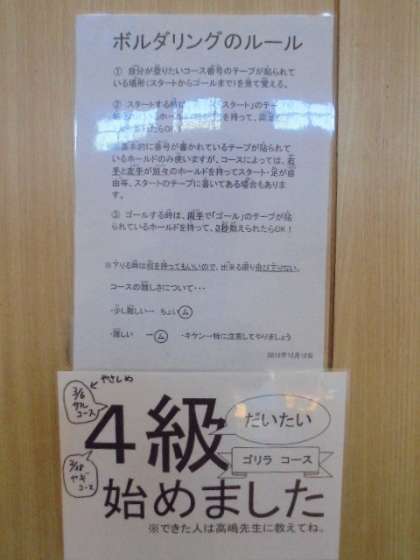 ボルダリングのルール
① 自分が登りたいコース番号のテープが貼られて
いる場所(スタートからゴールまで)を見て覚える。
② スタートする時は
スタート」のテー
ホル
を持って、
れたらOK!
基本的に番号が書かれているテープが貼られて
いるホールドのみ使いますが、コースによっては、右
手と左手が別々のホールドを持ってスタート・足が自
由等、スタートのテープに書いてある場合もありま
す。
③ ゴールする時は、両手で「ゴール」のテープが貼
られているホールドを持って、3秒数えられたらOK!
※下りる時は何を持ってもいいので、出来る限り飛び下りない。
コースの難しさについて・・・
・少し難しい→ ちょいム
・難しい →ム
・キケン→特に注意してやりましょう
やさしめ
3/6
サル
コース
4級
だいたい
ゴリラ コース
ヤギ
コース
始めました
※できた人は高嶋先生に教えてね。